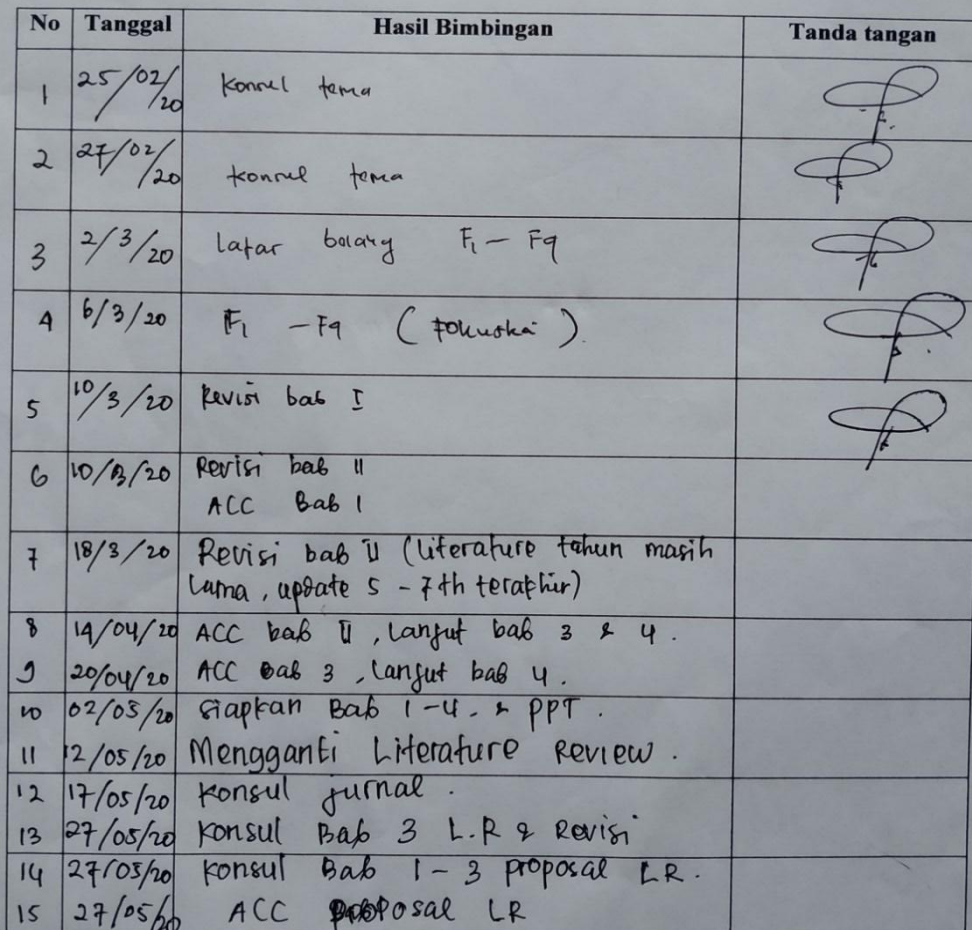 No Tanggal Hasil Bimbingan Tanda tangan
1 25/02/20 Konsul tema
2 27/02/20 konsul tema
3 2/3/20 latar belakang F1 - F9
4 6/3/20 F1 - F9 (Fokuska)
5 10/3/20 Revisi bab I
6 10/3/20 Revisi bab II
ACC Bab 1
7 18/3/20 Revisi bab II (literature tahun masih
lama, update 5 - 7 th terakhir)
8 14/04/20 ACC bab II, lanjut bab 3 & 4.
9 20/04/20 ACC bab 3, lanjut bab 4.
10 02/05/20 siapkan Bab 1-4. & PPT.
11 12/05/20 Mengganti Literature Review.
12 17/05/20 Konsul jurnal.
13 27/05/20 Konsul Bab 3 L.R & Revisi
14 27/05/20 Konsul Bab 1-3 proposal LR.
15 27/05/20 ACC proposal LR